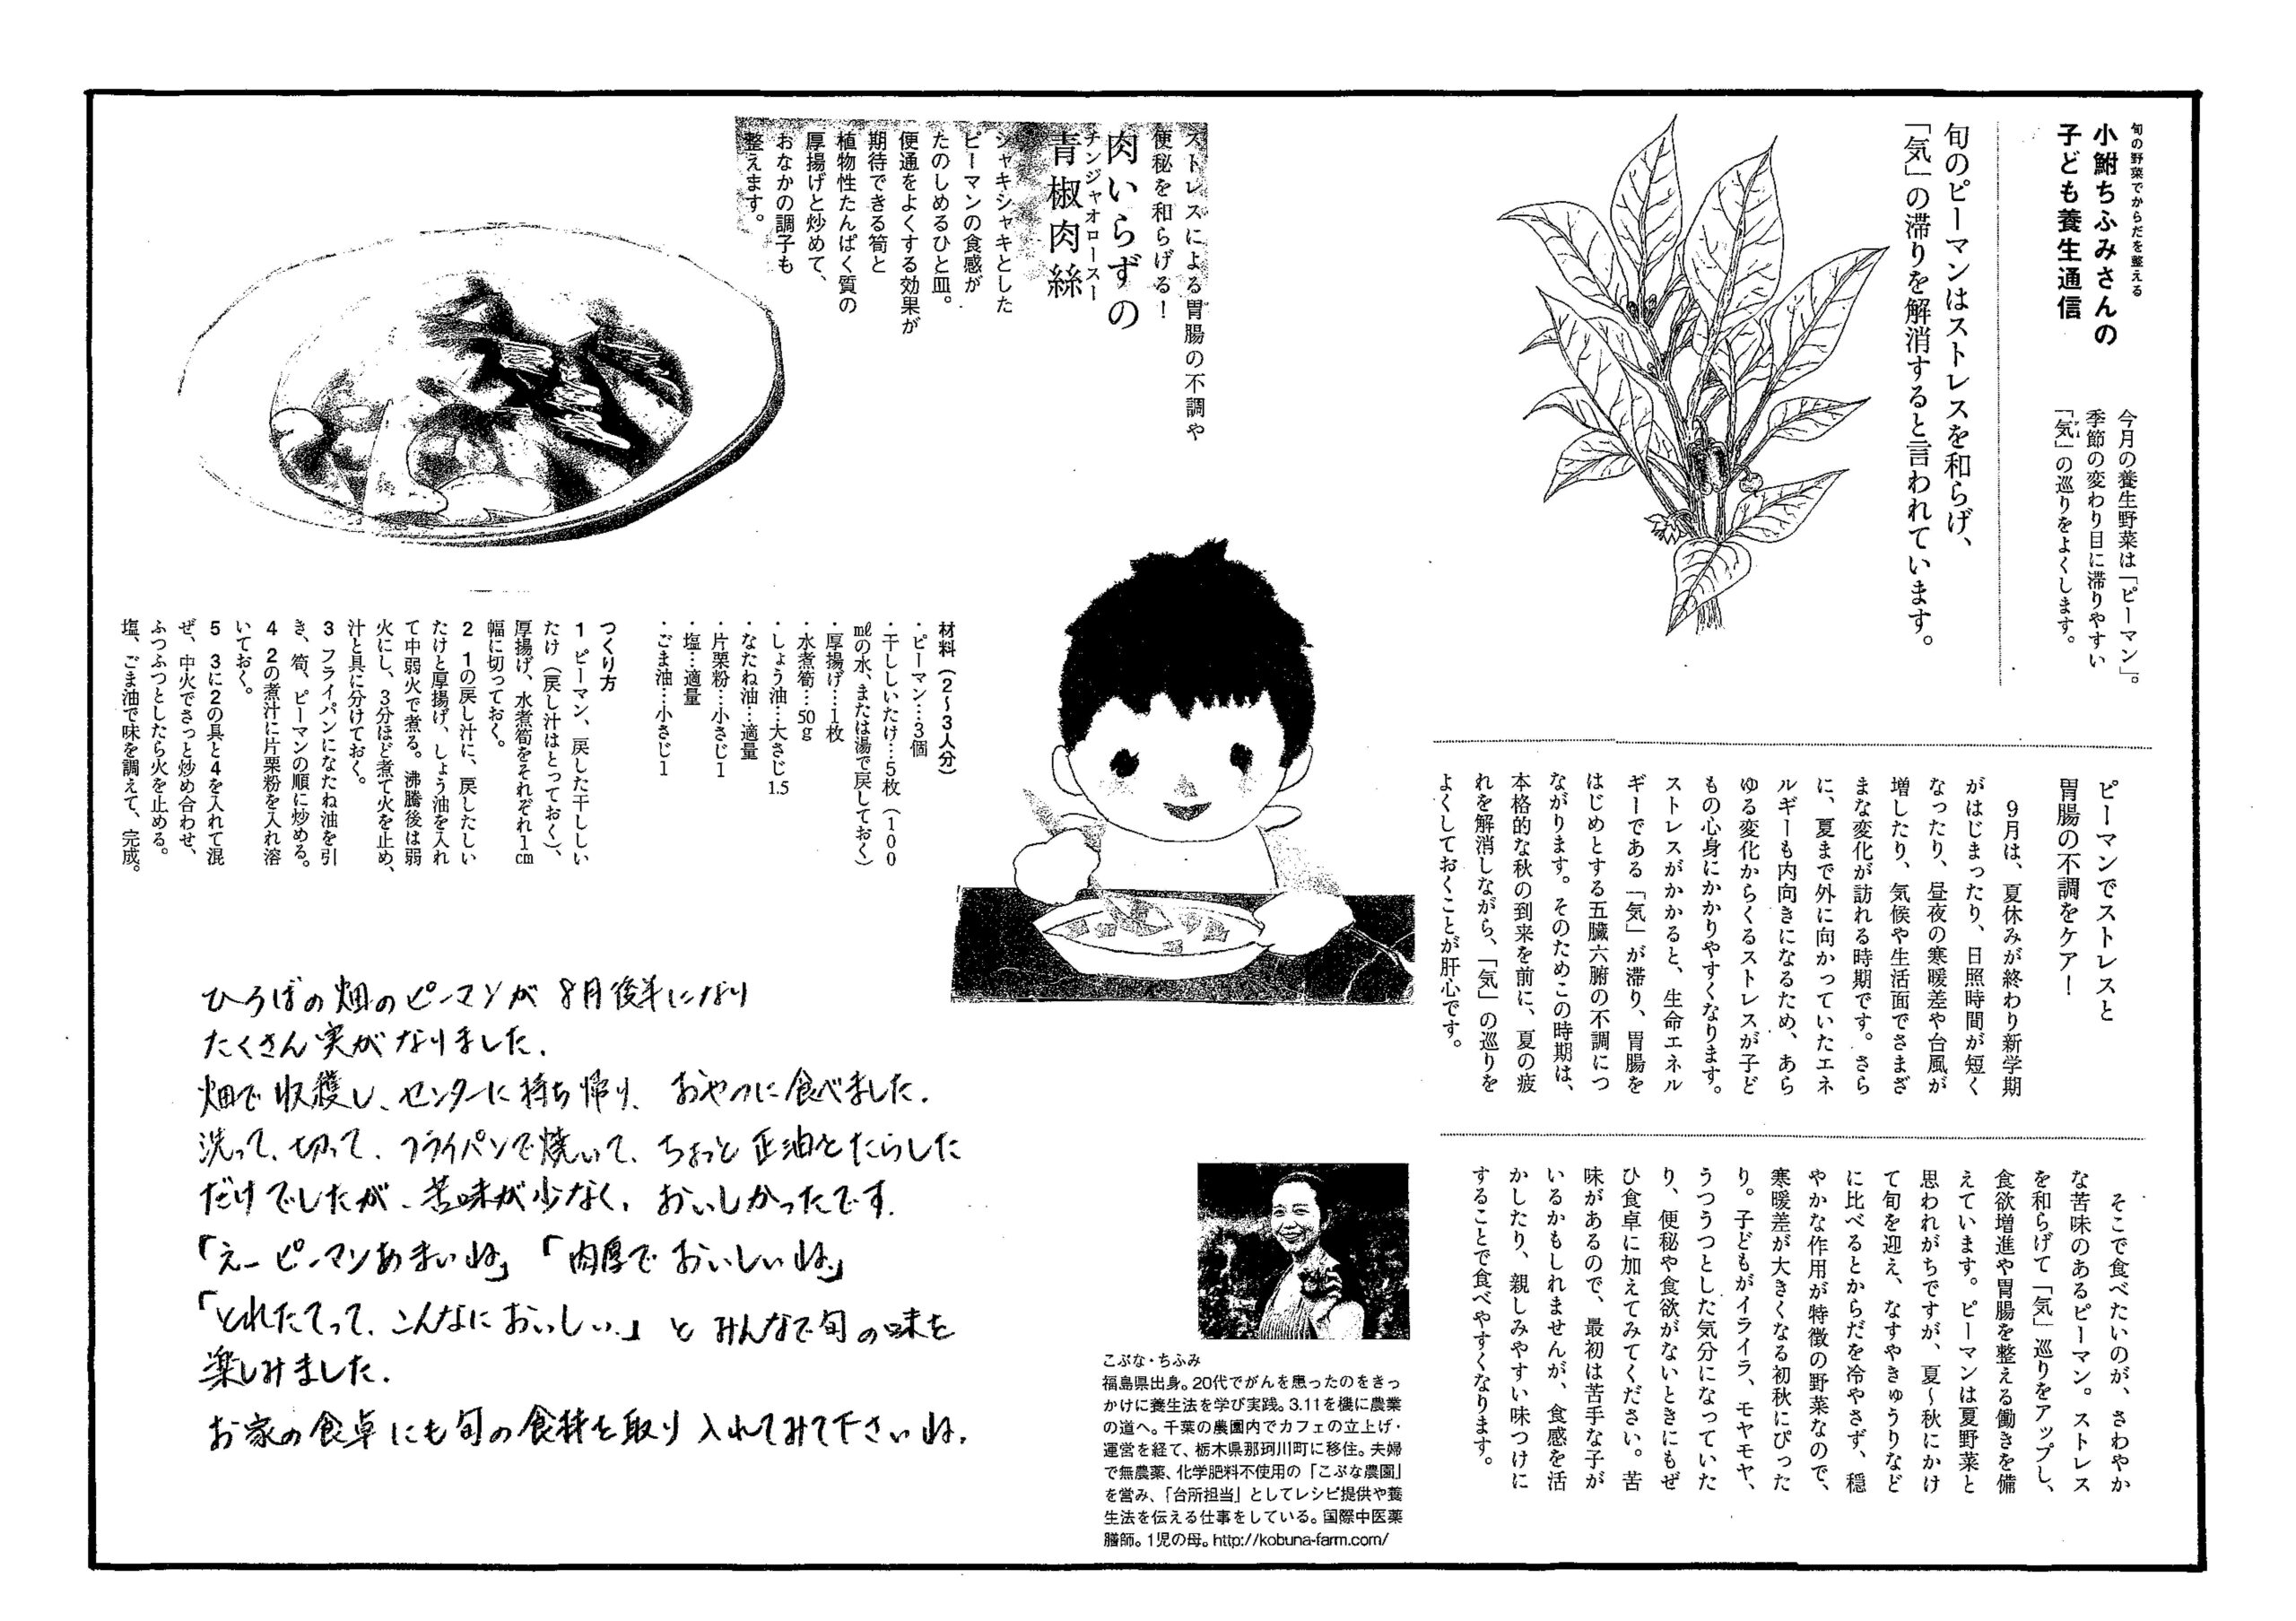 旬の野菜でからだを整える
小鮒ちふみさんの
子ども養生通信
今月の養生野菜は「ピーマン」。
季節の変わり目に滞りやすい
「気」の巡りをよくします。
旬のピーマンはストレスを和らげ、
「気」の滞りを解消すると言われています。
ピーマンでストレスと
胃腸の不調をケア！
9月は、夏休みが終わり新学期
がはじまったり、日照時間が短く
なったり、昼夜の寒暖差や台風が
増したり、気候や生活面でさまざ
まな変化が訪れる時期です。さら
に、夏まで外に向かっていたエネ
ルギーも内向きになるため、あら
ゆる変化からくるストレスが子ど
もの心身にかかりやすくなります。
ストレスがかかると、生命エネル
ギーである「気」が滞り、胃腸を
はじめとする五臓六腑の不調につ
ながります。そのためこの時期は、
本格的な秋の到来を前に、夏の疲
れを解消しながら、「気」の巡りを
よくしておくことが肝心です。
そこで食べたいのが、さわやか
な苦味のあるピーマン。ストレス
を和らげて「気」巡りをアップし、
食欲増進や胃腸を整える働きを備
えています。ピーマンは夏野菜と
思われがちですが、夏〜秋にかけ
て旬を迎え、なすやきゅうりなど
に比べるとからだを冷やさず、穏
やかな作用が特徴の野菜なので、
寒暖差が大きくなる初秋にぴった
り。子どもがイライラ、モヤモヤ、
うつうつとした気分になっていた
り、便秘や食欲がないときにもぜ
ひ食卓に加えてみてください。苦
味があるので、最初は苦手な子が
いるかもしれませんが、食感を活
かしたり、親しみやすい味つけに
することで食べやすくなります。
ストレスによる胃腸の不調や
便秘を和らげる！
肉いらずの
チンジャオロースー
青椒肉絲
シャキシャキとした
ピーマンの食感が
たのしめるひと皿。
便通をよくする効果が
期待できる筍と
植物性たんぱく質の
厚揚げと炒めて、
おなかの調子も
整えます。
材料（2〜3人分）
・ピーマン…3個
・干ししいたけ…5枚（100
mlの水、または湯で戻しておく）
・厚揚げ…1枚
・水煮筍…50g
・しょう油…大さじ1.5
・なたね油…適量
・片栗粉…小さじ1
・塩…適量
・ごま油…小さじ1
つくり方
1 ピーマン、戻した干ししい
たけ（戻し汁はとっておく）、
厚揚げ、水煮筍をそれぞれ1cm
幅に切っておく。
2 1の戻し汁に、戻したしい
たけと厚揚げ、しょう油を入れ
て中弱火で煮る。沸騰後は弱
火にし、3分ほど煮て火を止め、
汁と具に分けておく。
3 フライパンになたね油を引
き、筍、ピーマンの順に炒める。
4 2の煮汁に片栗粉を入れ溶
いておく。
5 3に2の具と4を入れて混
ぜ、中火でさっと炒め合わせ、
ふつふつとしたら火を止める。
塩、ごま油で味を調えて、完成。
ひろばの畑のピーマンが8月後半になり
たくさん実がなりました.
畑で収穫し、センターに持ち帰り、おやつに食べました.
洗って、切って、フライパンで焼いて、ちょっと正油をたらした
だけでしたが、苦味が少なく、おいしかったです.
「えーピーマンあまいね」「肉厚でおいしいね」
「とれたてって、こんなにおいしい」とみんなで旬の味を
楽しみました.
お家の食卓にも旬の食材を取り入れてみて下さいね.
こぶな・ちふみ
福島県出身。20代でがんを患ったのをきっ
かけに養生法を学び実践。3.11を機に農業
の道へ。千葉の農園内でカフェの立上げ・
運営を経て、栃木県那珂川町に移住。夫婦
で無農薬、化学肥料不使用の「こぶな農園」
を営み、「台所担当」としてレシピ提供や養
生法を伝える仕事をしている。国際中医薬
膳師。1児の母。http://kobuna-farm.com/